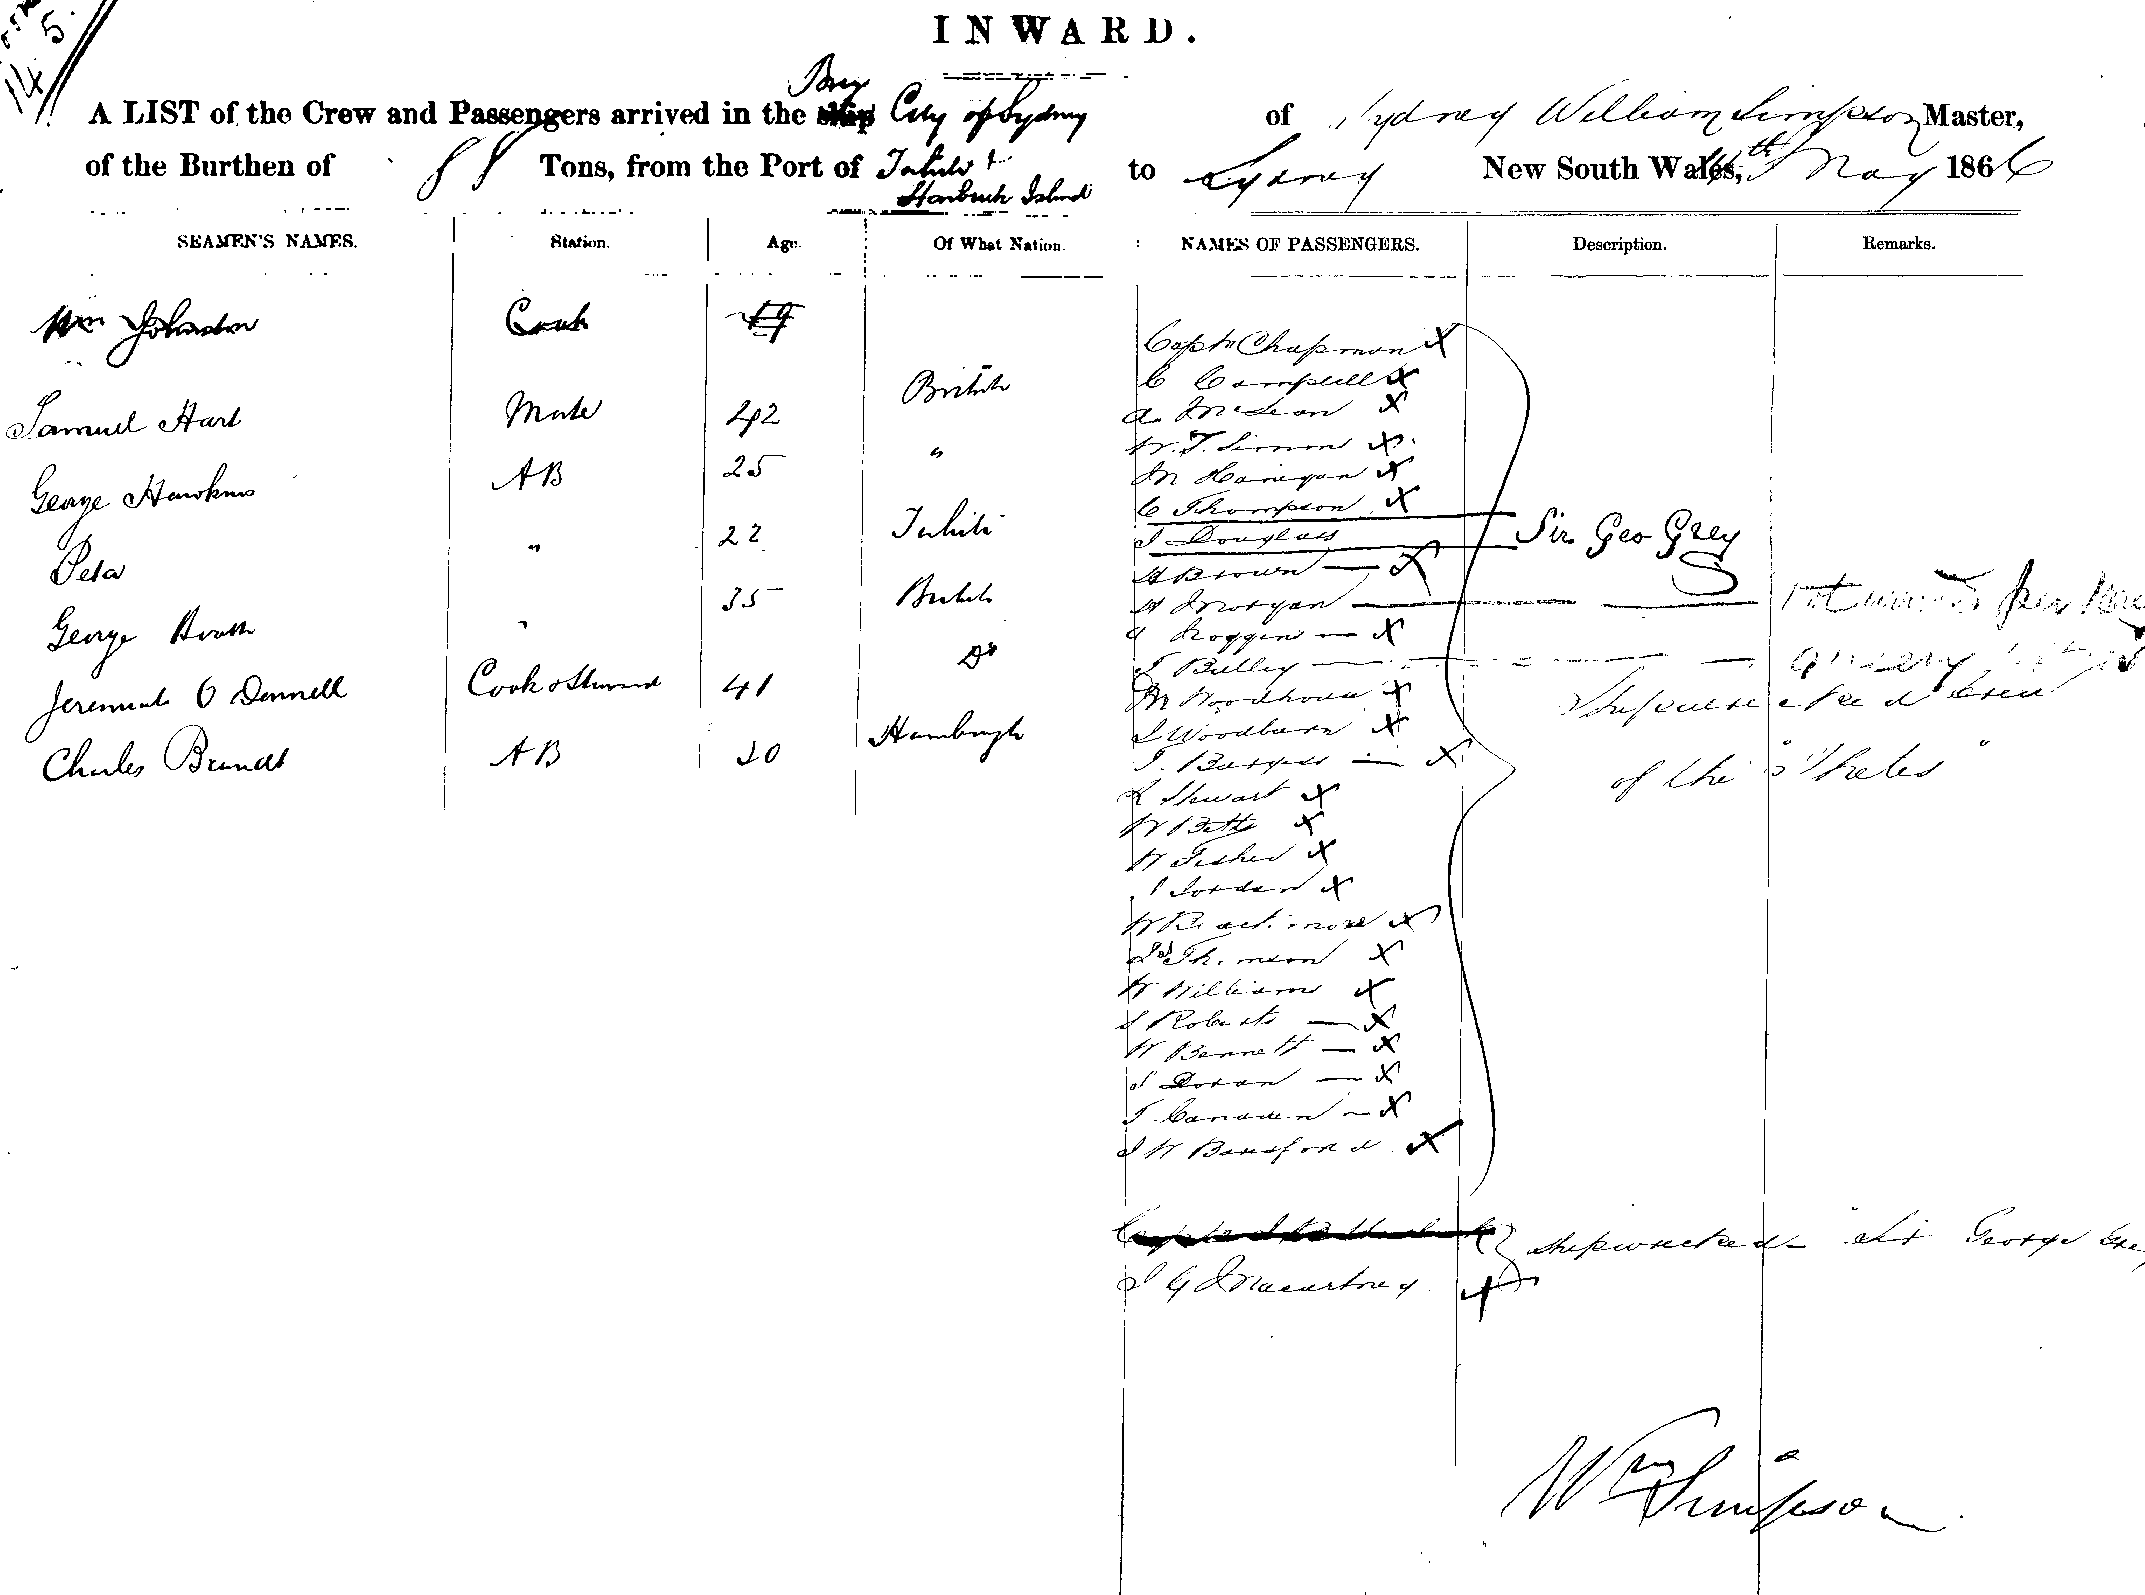 14. 5.
INWARD.
A LIST of the Crew and Passengers arrived in the ship Brig City of Sydney of Sydney William Simpson Master,
of the Burthen of Tons, from the Port of Tahiti & Starbuck Island to Sydney New South Wales, 14th May 1866
SEAMEN'S NAMES. Station. Age. Of What Nation. NAMES OF PASSENGERS. Description. Remarks.
Wm Johnston Cook 49
Samuel Hart Mate 42 British
George Hawkins AB 25 "
Peta " 22 Tahiti
George Booth " 35 British
Jeremiah O Donnell Cook & Steward 41 Do
Charles Brandt AB 20 Hamburgh
Captn Chapman X
C Campbell X
A. McLean X
W. T. Simon X
M Hanigan X
C Thompson X
J Douglas Sir Geo Grey
H Brown — X
H Morgan — per
A Noggin — X
J Bulley —
M Woodhouse X
J Woodburn X
J. Burgess — X
Shipwrecked Crew
of the "Thetis"
R Stewart X
W Betts X
W Fisher X
J Jordan X
W X
Js Thomson X
W Williams X
J Roberts — X
W Bennett — X
J Doran — X
J — X
J W X
Shipwrecked Sir George Grey
J G Macartney X
Wm Simpson